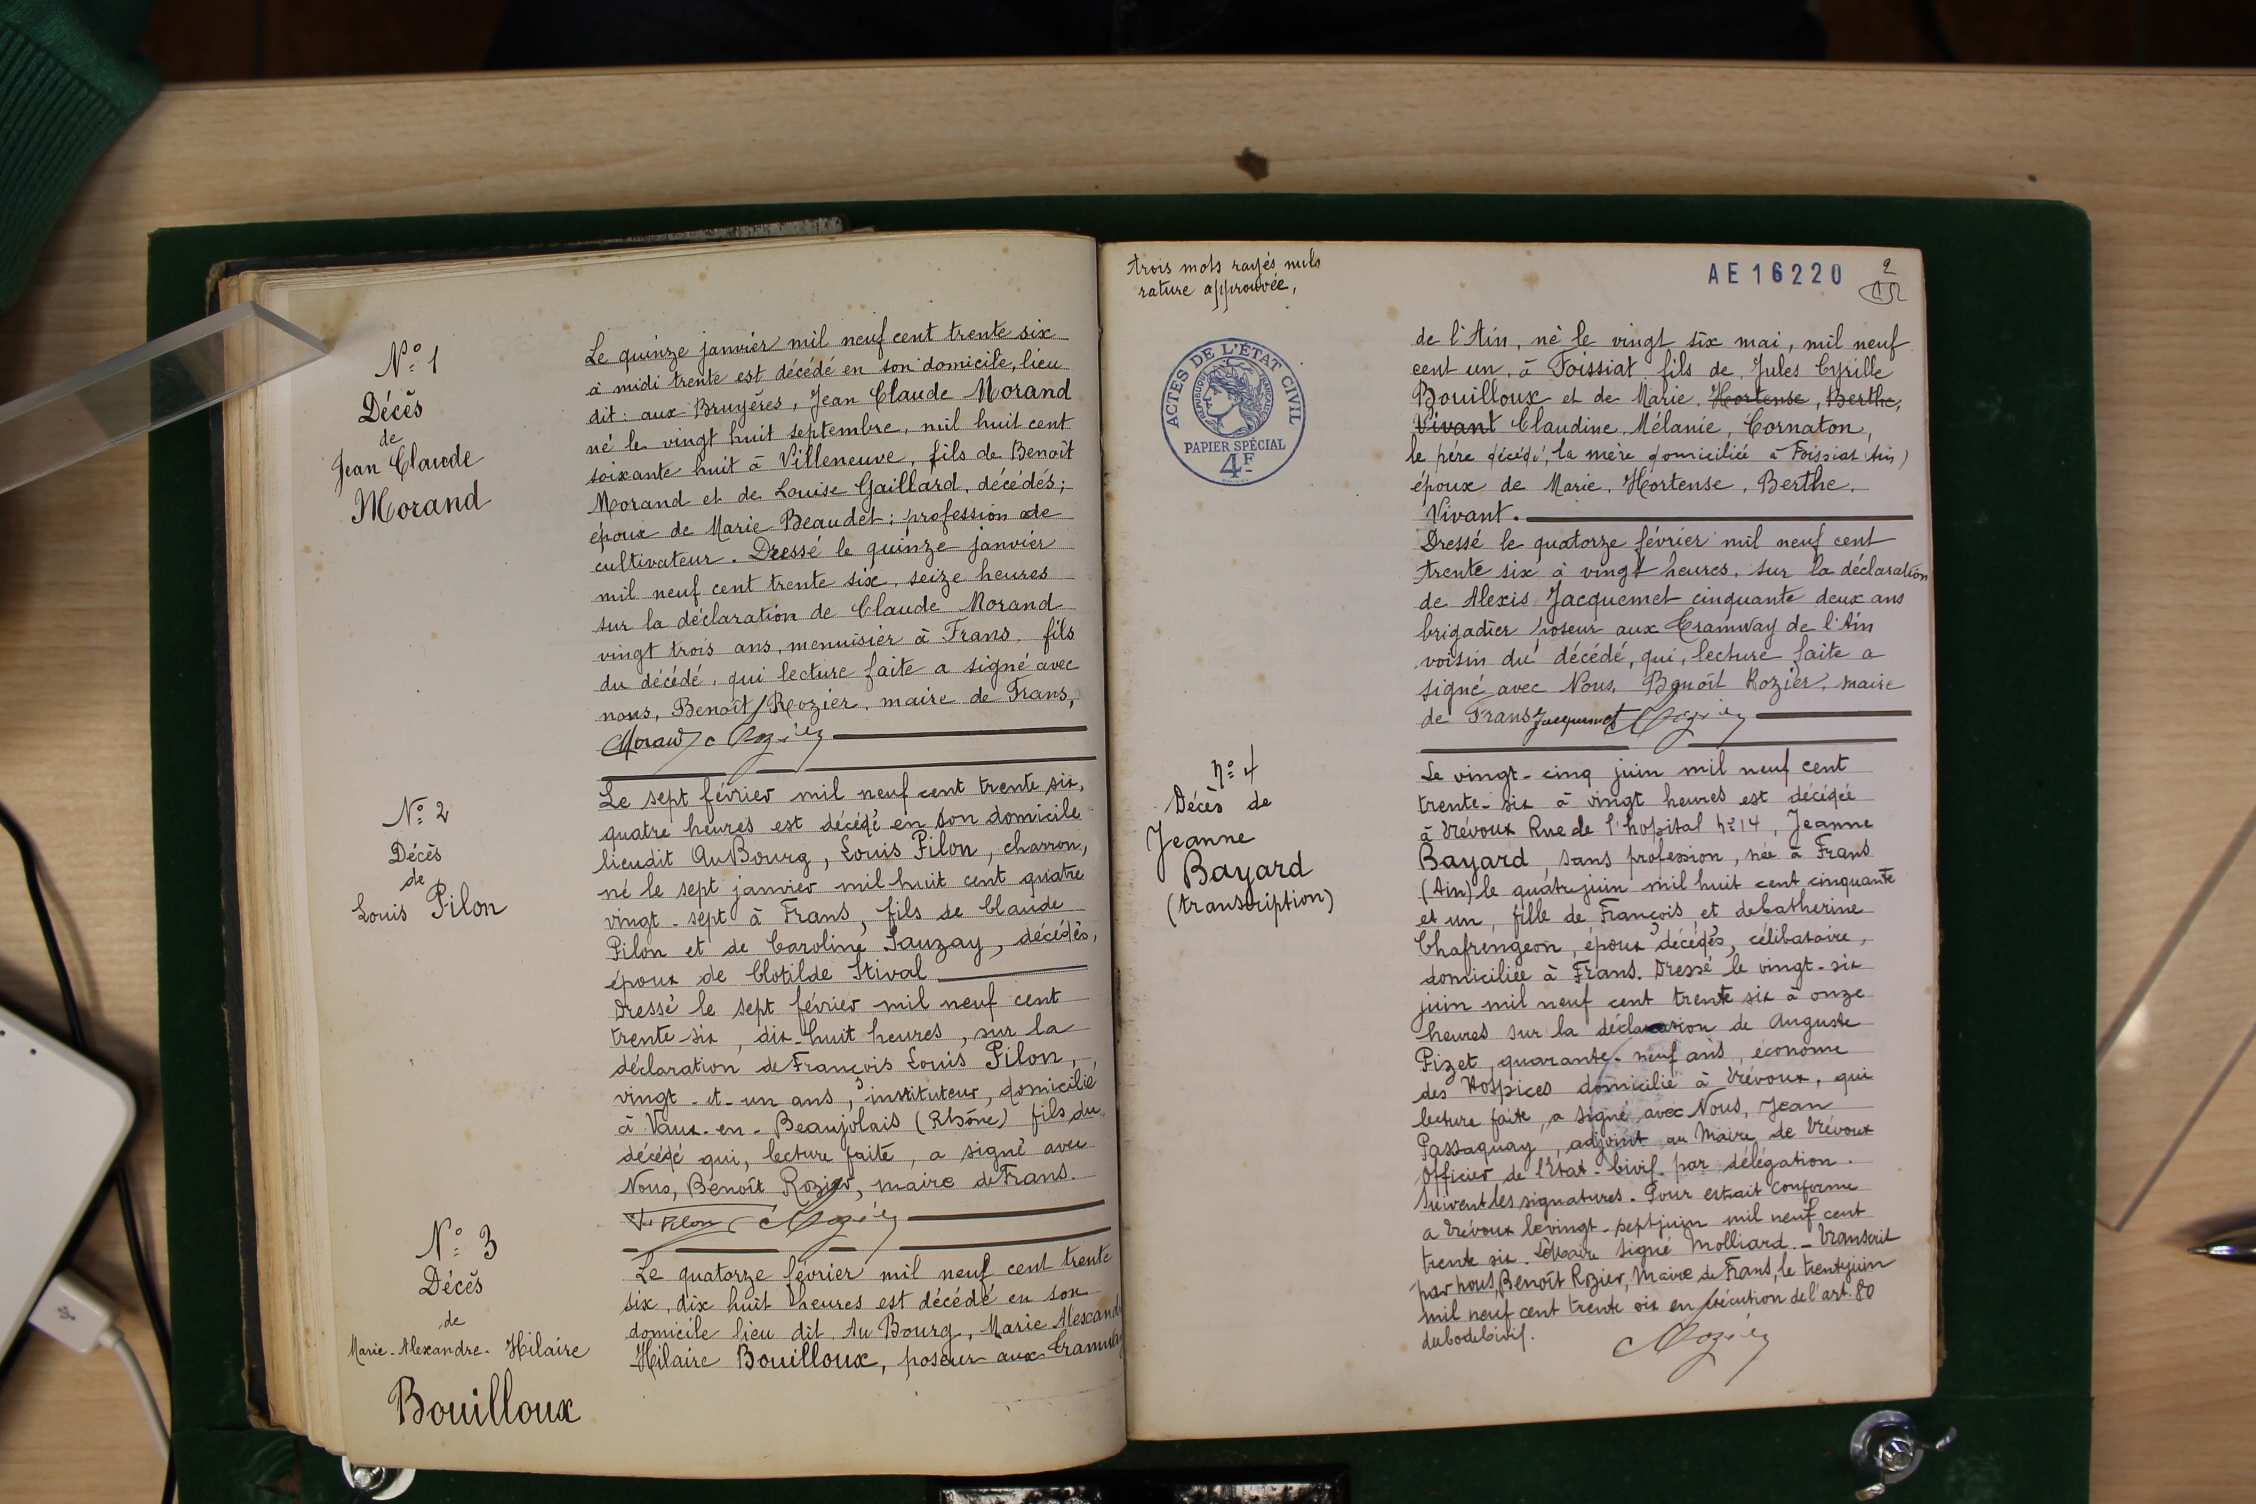 N° 1
Décès
de
Jean Claude
Morand
Le quinze janvier mil neuf cent trente six
à midi trente est décédé en son domicile, lieu
dit : aux Bruyères, Jean Claude Morand
né le vingt huit septembre, mil huit cent
soixante huit à Villeneuve, fils de Benoît
Morand et de Louise Gaillard, décédés ;
époux de Marie Beaudet ; profession de
cultivateur. Dressé le quinze janvier
mil neuf cent trente six, seize heures
sur la déclaration de Claude Morand
vingt trois ans, menuisier à Frans, fils
du décédé, qui lecture faite a signé avec
nous, Benoît Rozier, maire de Frans,
Morand Rozier
N° 2
Décès
de
Louis Pilon
Le sept février mil neuf cent trente six,
quatre heures est décédé en son domicile
lieudit Au Bourg, Louis Pilon, charron,
né le sept janvier mil huit cent quatre
vingt-sept à Frans, fils de Claude
Pilon et de Caroline Sauzay, décédés,
époux de Clotilde Stival
Dressé le sept février mil neuf cent
trente-six, dix-huit heures, sur la
déclaration de François Louis Pilon,
vingt-et-un ans, instituteur, domicilié
à Vaux-en-Beaujolais (Rhône) fils du
décédé qui, lecture faite, a signé avec
Nous, Benoît Rozier, maire de Frans.
Pilon Rozier
N° 3
Décès
de
Marie-Alexandre-Hilaire
Bouilloux
Le quatorze février mil neuf cent trente
six, dix huit heures est décédé en son
domicile lieu dit Au Bourg, Marie Alexandre
Hilaire Bouilloux, poseur aux Tramway
trois mots rayés nuls
rature approuvée,
AE 16220
2
ACTES DE L'ÉTAT CIVIL
RÉPUBLIQUE FRANÇAISE
PAPIER SPÉCIAL
4F
de l'Ain, né le vingt six mai, mil neuf
cent un, à Foissiat, fils de Jules Cyrille
Bouilloux et de Marie, Hortense, Berthe,
Vivant Claudine, Mélanie, Cornaton,
le père décédé, la mère domiciliée à Foissiat (Ain)
époux de Marie, Hortense, Berthe,
Vivant.
Dressé le quatorze février mil neuf cent
trente six à vingt heures, sur la déclaration
de Alexis Jacquemet cinquante deux ans
brigadier poseur aux Tramway de l'Ain
voisin du décédé, qui, lecture faite a
signé avec Nous, Benoît Rozier, maire
de Frans Jacquemet Rozier
N° 4
Décès de
Jeanne
Bayard
(transcription)
Le vingt-cinq juin mil neuf cent
trente-six à vingt heures est décédée
à Trévoux Rue de l'hopital N° 14, Jeanne
Bayard, sans profession, née à Frans
(Ain) le quatre juin mil huit cent cinquante
et un, fille de François, et de Catherine
Chafrengeon, époux décédés, célibataire,
domiciliée à Frans. Dressé le vingt-six
juin mil neuf cent trente six à onze
heures sur la déclaration de Auguste
Pizet, quarante-neuf ans, économe
des Hospices domicilié à Trévoux, qui
lecture faite, a signé avec Nous, Jean
Passaquay, adjoint au Maire de Trévoux
Officier de l'Etat-Civil par délégation.
Suivent les signatures. Pour extrait conforme
a Trévoux le vingt-sept juin mil neuf cent
trente six. Le Maire Signé Molliard. - Transcrit
par nous, Benoît Rozier, Maire de Frans, le trente juin
mil neuf cent trente six en exécution de l'art. 80
du Code Civil.
Rozier